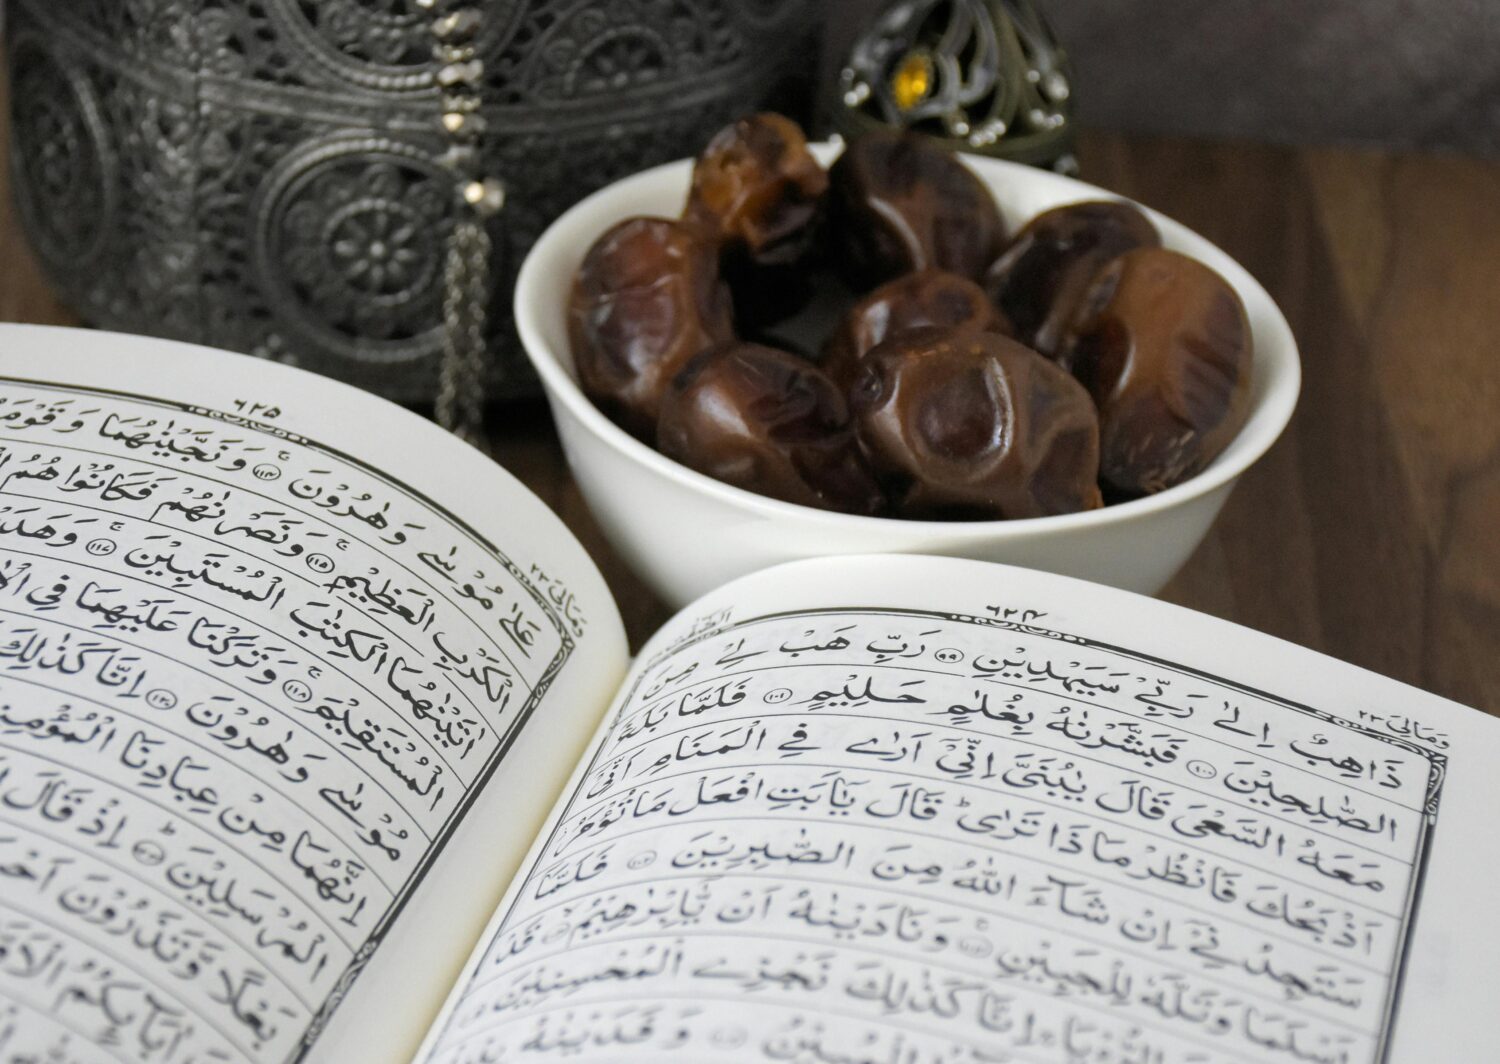 وَمَالِيَ ٢٣
٦٢٤
ذَاهِبٌ اِلٰى رَبِّيْ سَيَهْدِيْنِ ﴿٩٩﴾ رَبِّ هَبْ لِيْ مِنَ
الصّٰلِحِيْنَ ﴿١٠٠﴾ فَبَشَّرْنٰهُ بِغُلٰمٍ حَلِيْمٍ ﴿١٠١﴾ فَلَمَّا بَلَغَ
مَعَهُ السَّعْيَ قَالَ يٰبُنَيَّ اِنِّيْٓ اَرٰى فِي الْمَنَامِ اَنِّيْٓ
اَذْبَحُكَ فَانْظُرْ مَاذَا تَرٰى ؕ قَالَ يٰٓاَبَتِ افْعَلْ مَا تُؤْمَرُ
سَتَجِدُنِيْٓ اِنْ شَآءَ اللّٰهُ مِنَ الصّٰبِرِيْنَ ﴿١٠٢﴾ فَلَمَّآ
اَسْلَمَا وَتَلَّهٗ لِلْجَبِيْنِ ﴿١٠٣﴾ وَنَادَيْنٰهُ اَنْ يّٰٓاِبْرٰهِيْمُ قَدْ
اِنَّا كَذٰلِكَ نَجْزِي الْمُحْسِنِيْنَ
وَفَدَيْنٰهُ
وَمَالِيَ ٢٣
٦٢٥
عَلٰى مُوْسٰى وَهٰرُوْنَ ﴿١١٤﴾ وَنَجَّيْنٰهُمَا
الْكَرْبِ الْعَظِيْمِ ﴿١١٥﴾ وَنَصَرْنٰهُمْ فَكَانُوْا هُمُ
اٰتَيْنٰهُمَا الْكِتٰبَ الْمُسْتَبِيْنَ ﴿١١٧﴾
الْمُسْتَقِيْمَ ﴿١١٨﴾ وَتَرَكْنَا عَلَيْهِمَا فِي
مُوْسٰى وَهٰرُوْنَ ﴿١٢٠﴾ اِنَّا كَذٰلِكَ
اِنَّهُمَا مِنْ عِبَادِنَا
الْمُرْسَلِيْنَ اِذْ قَالَ
بَعْلًا وَّتَذَرُوْنَ
اٰبَآئِكُمُ